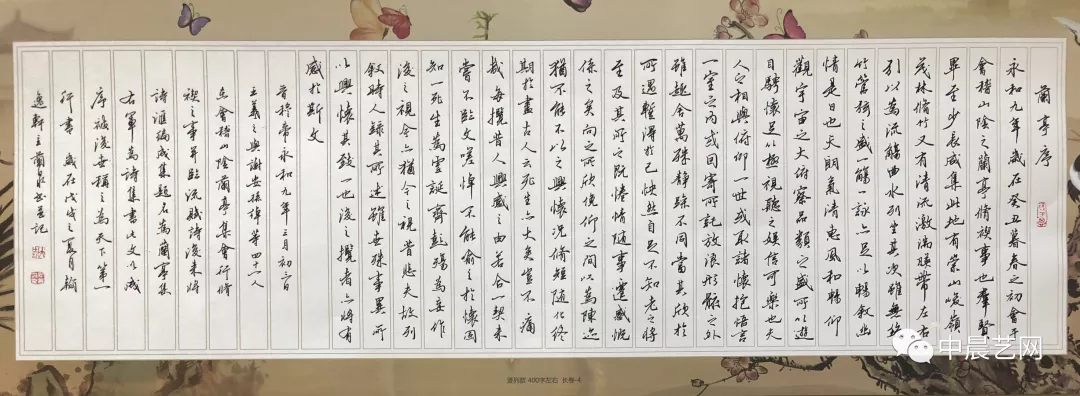 蘭亭序
永和九年歲在癸丑暮春之初會于
會稽山陰之蘭亭脩禊事也羣賢
畢至少長咸集此地有崇山峻嶺
茂林脩竹又有清流激湍暎帶左右
引以為流觴曲水列坐其次雖無絲
竹管絃之盛一觴一詠亦足以暢敘幽
情是日也天朗氣清惠風和暢仰
觀宇宙之大俯察品類之盛所以遊
目騁懷足以極視聽之娛信可樂也夫
人之相與俯仰一世或取諸懷抱悟言
一室之內或因寄所託放浪形骸之外
雖趣舍萬殊靜躁不同當其欣於
所遇暫得於己快然自足不知老之將
至及其所之既惓情隨事遷感慨
係之矣向之所欣俛仰之間以為陳迹
猶不能不以之興懷況脩短隨化終
期於盡古人云死生亦大矣豈不痛
哉每攬昔人興感之由若合一契未
嘗不臨文嗟悼不能喻之於懷固
知一死生為虛誕齊彭殤為妄作
後之視今亦猶今之視昔悲夫故列
敘時人錄其所述雖世殊事異所
以興懷其致一也後之攬者亦將有
感於斯文
晉穆帝永和九年三月初三日
王羲之與謝安孫綽等四十一人
在會稽山陰蘭亭集會行脩
禊之事并臨流賦詩後來將
詩滙編成集題名為蘭亭集
右軍為詩集書此文以成
序被後世稱之為天下第一
行書 歲在戊戌之夏月翰
逸軒主蘭泉書並記
400字左右 长卷-4
中晨艺网